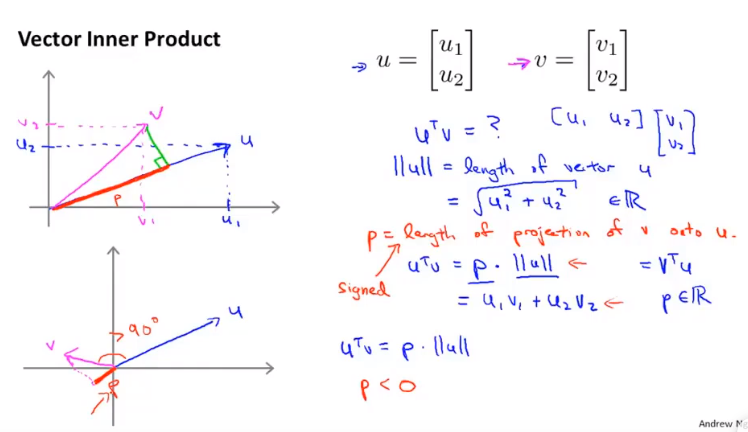 Vector Inner Product
u = [u1 u2]
v = [v1 v2]
v
v2
u2
u
p
v1
u1
uᵀv = ? [u1 u2] [v1 v2]
||u|| = length of vector u
= √u1² + u2² ∈ ℝ
p = length of projection of v onto u.
signed
uᵀv = p · ||u|| ← = vᵀu
= u1v1 + u2v2 ← p ∈ ℝ
> 90°
u
v
p
uᵀv = p · ||u||
p < 0
Andrew N